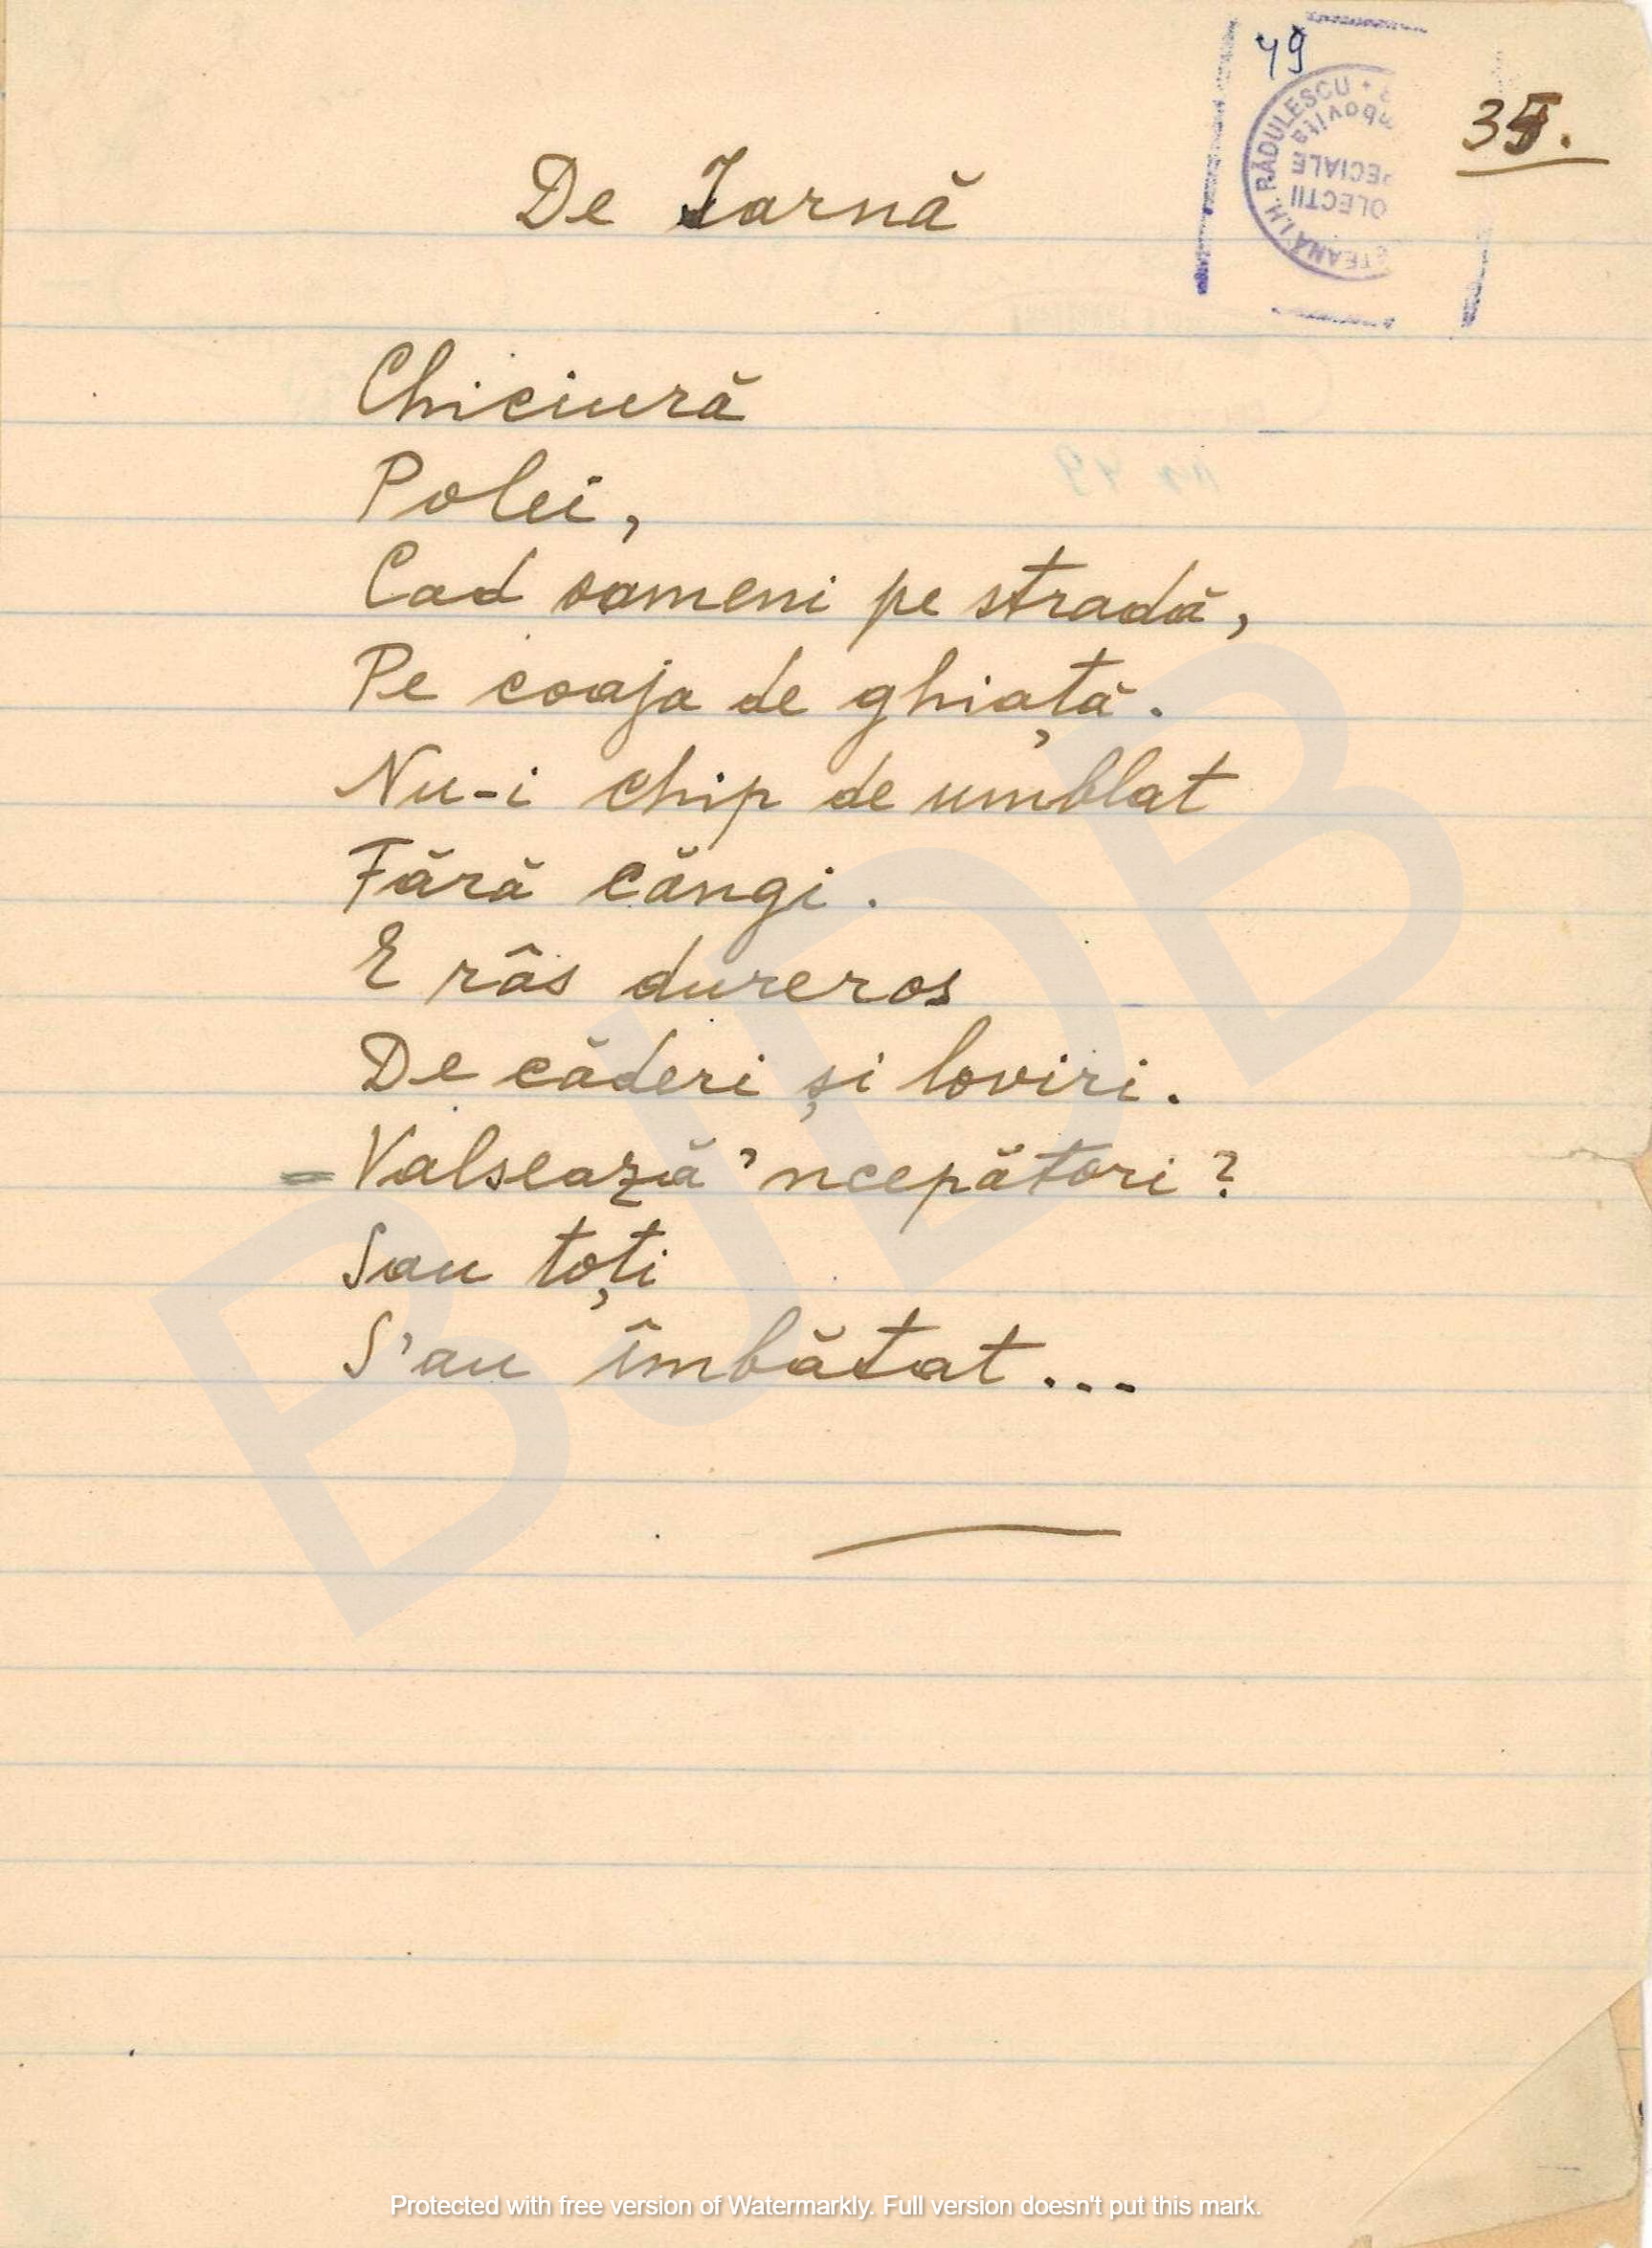 49
35.
RĂDULESCU
De Iarnă
Chiciură
Polei,
Cad oameni pe stradă,
Pe coaja de ghiață.
Nu-i chip de umblat
Fără căngi.
E râs dureros
De căderi și loviri.
Valsează 'ncepători?
Sau toți
S'au îmbătat...
BJDB
Protected with free version of Watermarkly. Full version doesn't put this mark.